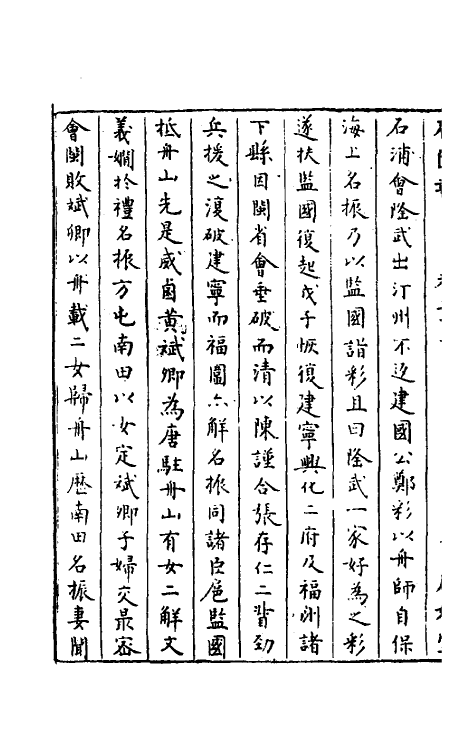 石浦會隆武出汀州不返建國公鄭彩以舟師自保
海上名振乃以監國詣彩且曰隆武一家好為之彩
遂扶監國復起戊子恢復建寧興化二府及福州諸
下縣因閩省會垂破而清以陳謹合張存仁二督勁
兵援之復破建寧而福圍亦解名振同諸臣扈監國
抵舟山先是威鹵黃斌卿為唐駐舟山有女二解文
義嫺於禮名振方屯南田以女定斌卿子婦交最密
會閩敗斌卿以舟載二女歸舟山歷南田名振妻聞